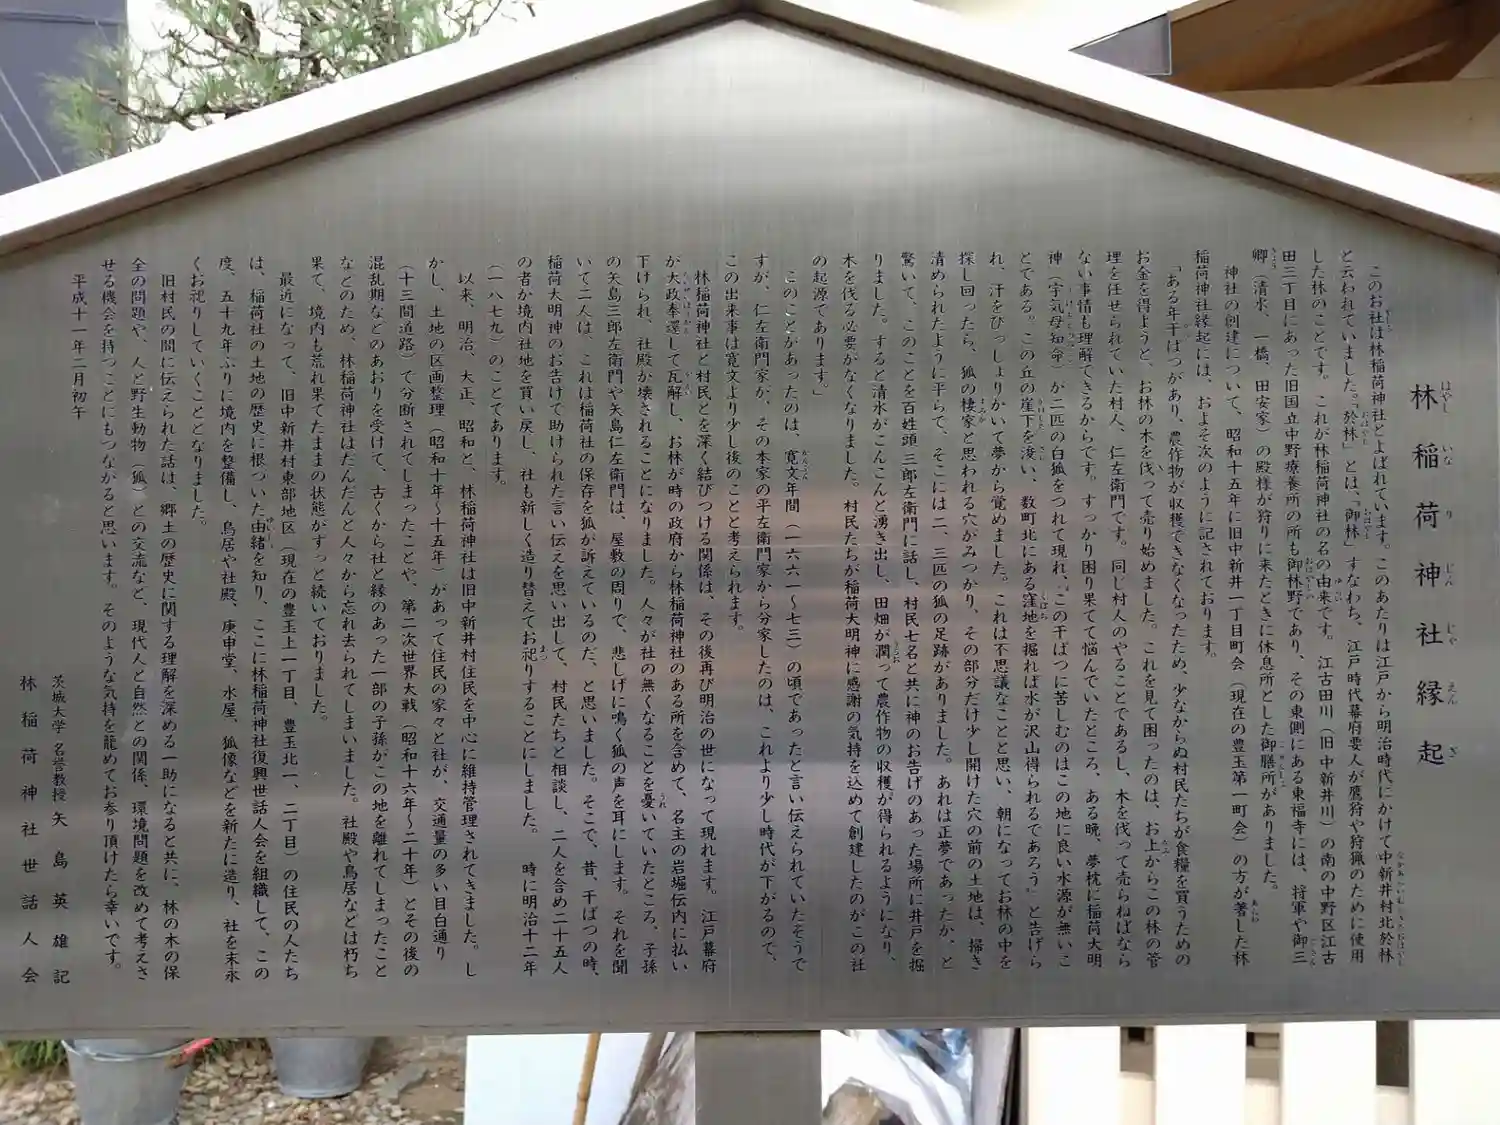 林稲荷神社縁起
このお社は林稲荷神社とよばれています。このあたりは江戸から明治時代にかけて中新井村北於林
と云われていました。「於林」とは、「御林」すなわち、江戸時代幕府要人が鷹狩や狩猟のために使用
した林のことです。これが林稲荷神社の名の由来です。江古田川（旧中新井川）の南の中野区江古
田三丁目にあった旧国立中野療養所の所も御林野であり、その東側にある東福寺には、将軍や御三
卿（清水、一橋、田安家）の殿様が狩りに来たときに休息所とした御膳所がありました。
神社の創建について、昭和十五年に旧中新井一丁目町会（現在の豊玉第一町会）の方が著した林
稲荷神社縁起には、およそ次のように記されております。
「ある年干ばつがあり、農作物が収穫できなくなったため、少なからぬ村民たちが食糧を買うための
お金を得ようと、お林の木を伐って売り始めました。これを見て困ったのは、お上からこの林の管
理を任せられていた村人、仁左衛門です。同じ村人のやることであるし、木を伐って売らねばなら
ない事情も理解できるからです。すっかり困り果てて悩んでいたところ、ある晩、夢枕に稲荷大明
神（宇気母知命）が二匹の白狐をつれて現れ、"この干ばつに苦しむのはこの地に良い水源が無いこ
とである。この丘の崖下を浚い、数町北にある窪地を掘れば水が沢山得られるであろう"と告げら
れ、汗をびっしょりかいて夢から覚めました。これは不思議なことと思い、朝になってお林の中を
探し回ったら、狐の棲家と思われる穴がみつかり、その部分だけ少し開けた穴の前の土地は、掃き
清められたように平らで、そこには二、三匹の狐の足跡がありました。あれは正夢であったか、と
驚いて、このことを百姓頭三郎左衛門に話し、村民七名と共に神のお告げのあった場所に井戸を掘
りました。すると清水がこんこんと湧き出し、田畑が潤って農作物の収穫が得られるようになり、
木を伐る必要がなくなりました。村民たちが稲荷大明神に感謝の気持を込めて創建したのがこの社
の起源であります。」
このことがあったのは、寛文年間（一六六一～七三）の頃であったと言い伝えられていたそうで
すが、仁左衛門家が、その本家の平左衛門家から分家したのは、これより少し時代が下がるので、
この出来事は寛文より少し後のことと考えられます。
林稲荷神社と村民とを深く結びつける関係は、その後再び明治の世になって現れます。江戸幕府
が大政奉還して瓦解し、お林が時の政府から林稲荷神社のある所を含めて、名主の岩堀伝内に払い
下げられ、社殿が壊されることになりました。人々が社の無くなることを憂いていたところ、子孫
の矢島三郎左衛門や矢島仁左衛門は、屋敷の周りで、悲しげに鳴く狐の声を耳にします。それを聞
いて二人は、これは稲荷社の保存を狐が訴えているのだ、と思いました。そこで、昔、干ばつの時、
稲荷大明神のお告げで助けられた言い伝えを思い出して、村民たちと相談し、二人を含め二十五人
の者が境内社地を買い戻し、社も新しく造り替えてお祀りすることにしました。時に明治十二年
（一八七九）のことであります。
以来、明治、大正、昭和と、林稲荷神社は旧中新井村住民を中心に維持管理されてきました。し
かし、土地の区画整理（昭和十年～十五年）があって住民の家々と社が、交通量の多い目白通り
（十三間道路）で分断されてしまったことや、第二次世界大戦（昭和十六年～二十年）とその後の
混乱期などのあおりを受けて、古くから社と縁のあった一部の子孫がこの地を離れてしまったこと
などのため、林稲荷神社はだんだんと人々から忘れ去られてしまいました。社殿や鳥居などは朽ち
果て、境内も荒れ果てたままの状態がずっと続いておりました。
最近になって、旧中新井村東部地区（現在の豊玉上一丁目、豊玉北一、二丁目）の住民の人たち
は、稲荷社の土地の歴史に根づいた由緒を知り、ここに林稲荷神社復興世話人会を組織して、この
度、五十九年ぶりに境内を整備し、鳥居や社殿、庚申堂、水屋、狐像などを新たに造り、社を末永
くお祀りしていくこととなりました。
旧村民の間に伝えられた話は、郷土の歴史に関する理解を深める一助になると共に、林の木の保
全の問題や、人と野生動物（狐）との交流など、現代人と自然との関係、環境問題を改めて考えさ
せる機会を持つことにもつながると思います。そのような気持を籠めてお参り頂けたら幸いです。
平成十一年二月初午
茨城大学名誉教授 矢島英雄 記
林稲荷神社世話人会